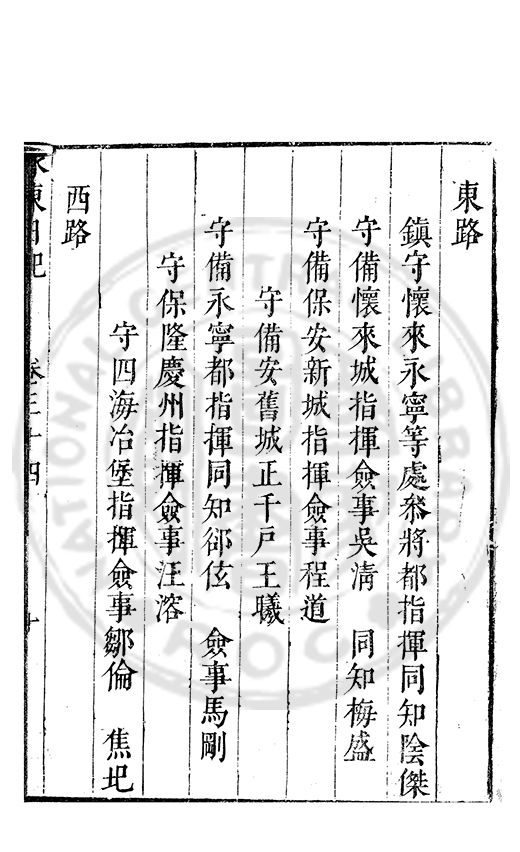 東路
鎮守懷來永寧等處叅將都指揮同知陰傑
守備懷來城指揮僉事吳淸 同知梅盛
守備保安新城指揮僉事程道
守備安舊城正千戶王曦
守備永寧都指揮同知郤伭 僉事馬剛
守保隆慶州指揮僉事汪溶
守四海冶堡指揮僉事鄒倫 焦圯
西路
東日記 卷三十四 十